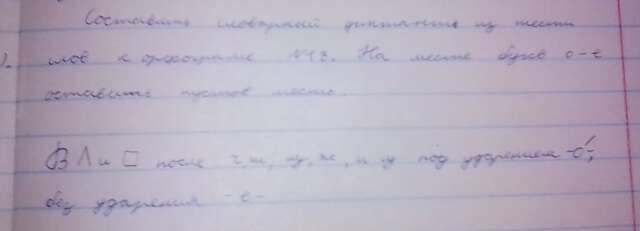 Составить словарный диктант из шести
слов к орфограмме №13. На месте букв о-е
оставить пустое место.
В ^ и □ после ч, ш, щ, ж, и ц под ударением -о́-,
без ударения -е-